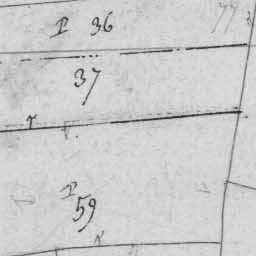 P 36
77
37
P
59